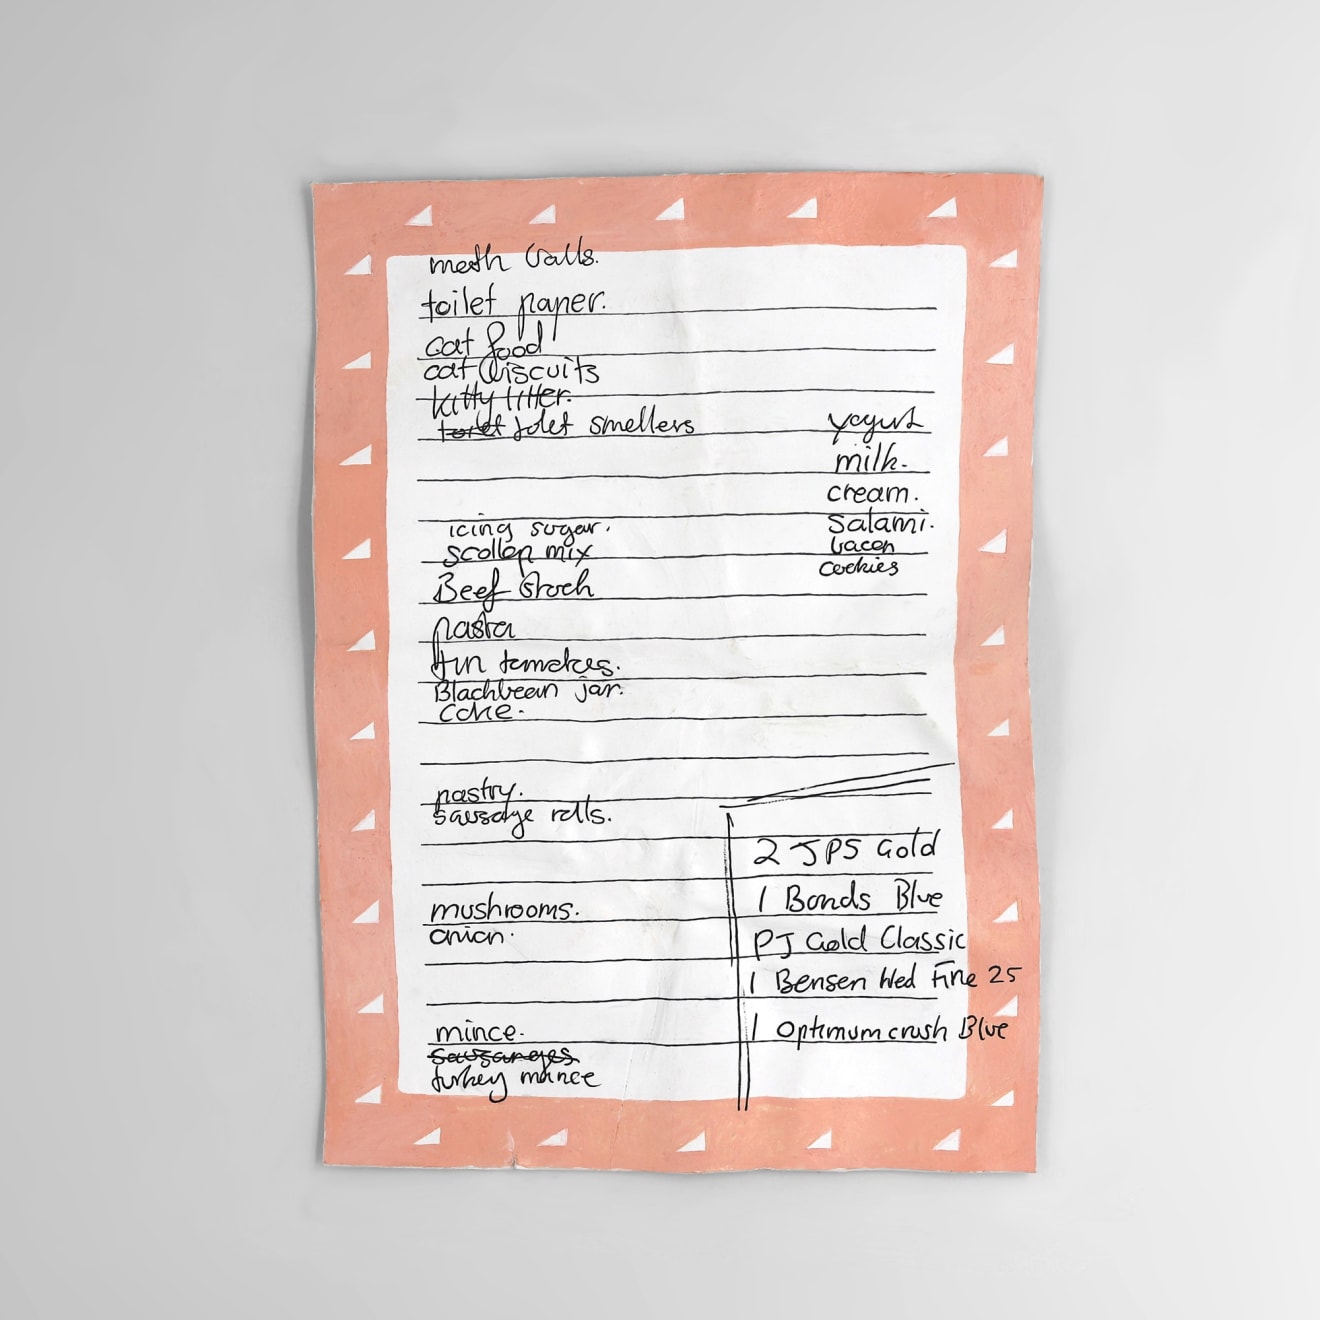 meth balls.
toilet paper.
cat food
cat biscuits
kitty litter.
toilet toilet smellers
yogurt
milk.
cream.
salami.
bacon
cookies
icing sugar.
scollop mix
Beef Stock
pasta
tin tomatoes.
Blackbean jar.
coke.
pastry.
sausage rolls.
mushrooms.
onion.
mince.
sausanges
turkey mince
2 JPS Gold
1 Bonds Blue
PJ Gold Classic
1 Bensen Wed Fine 25
1 Optimum crush Blue